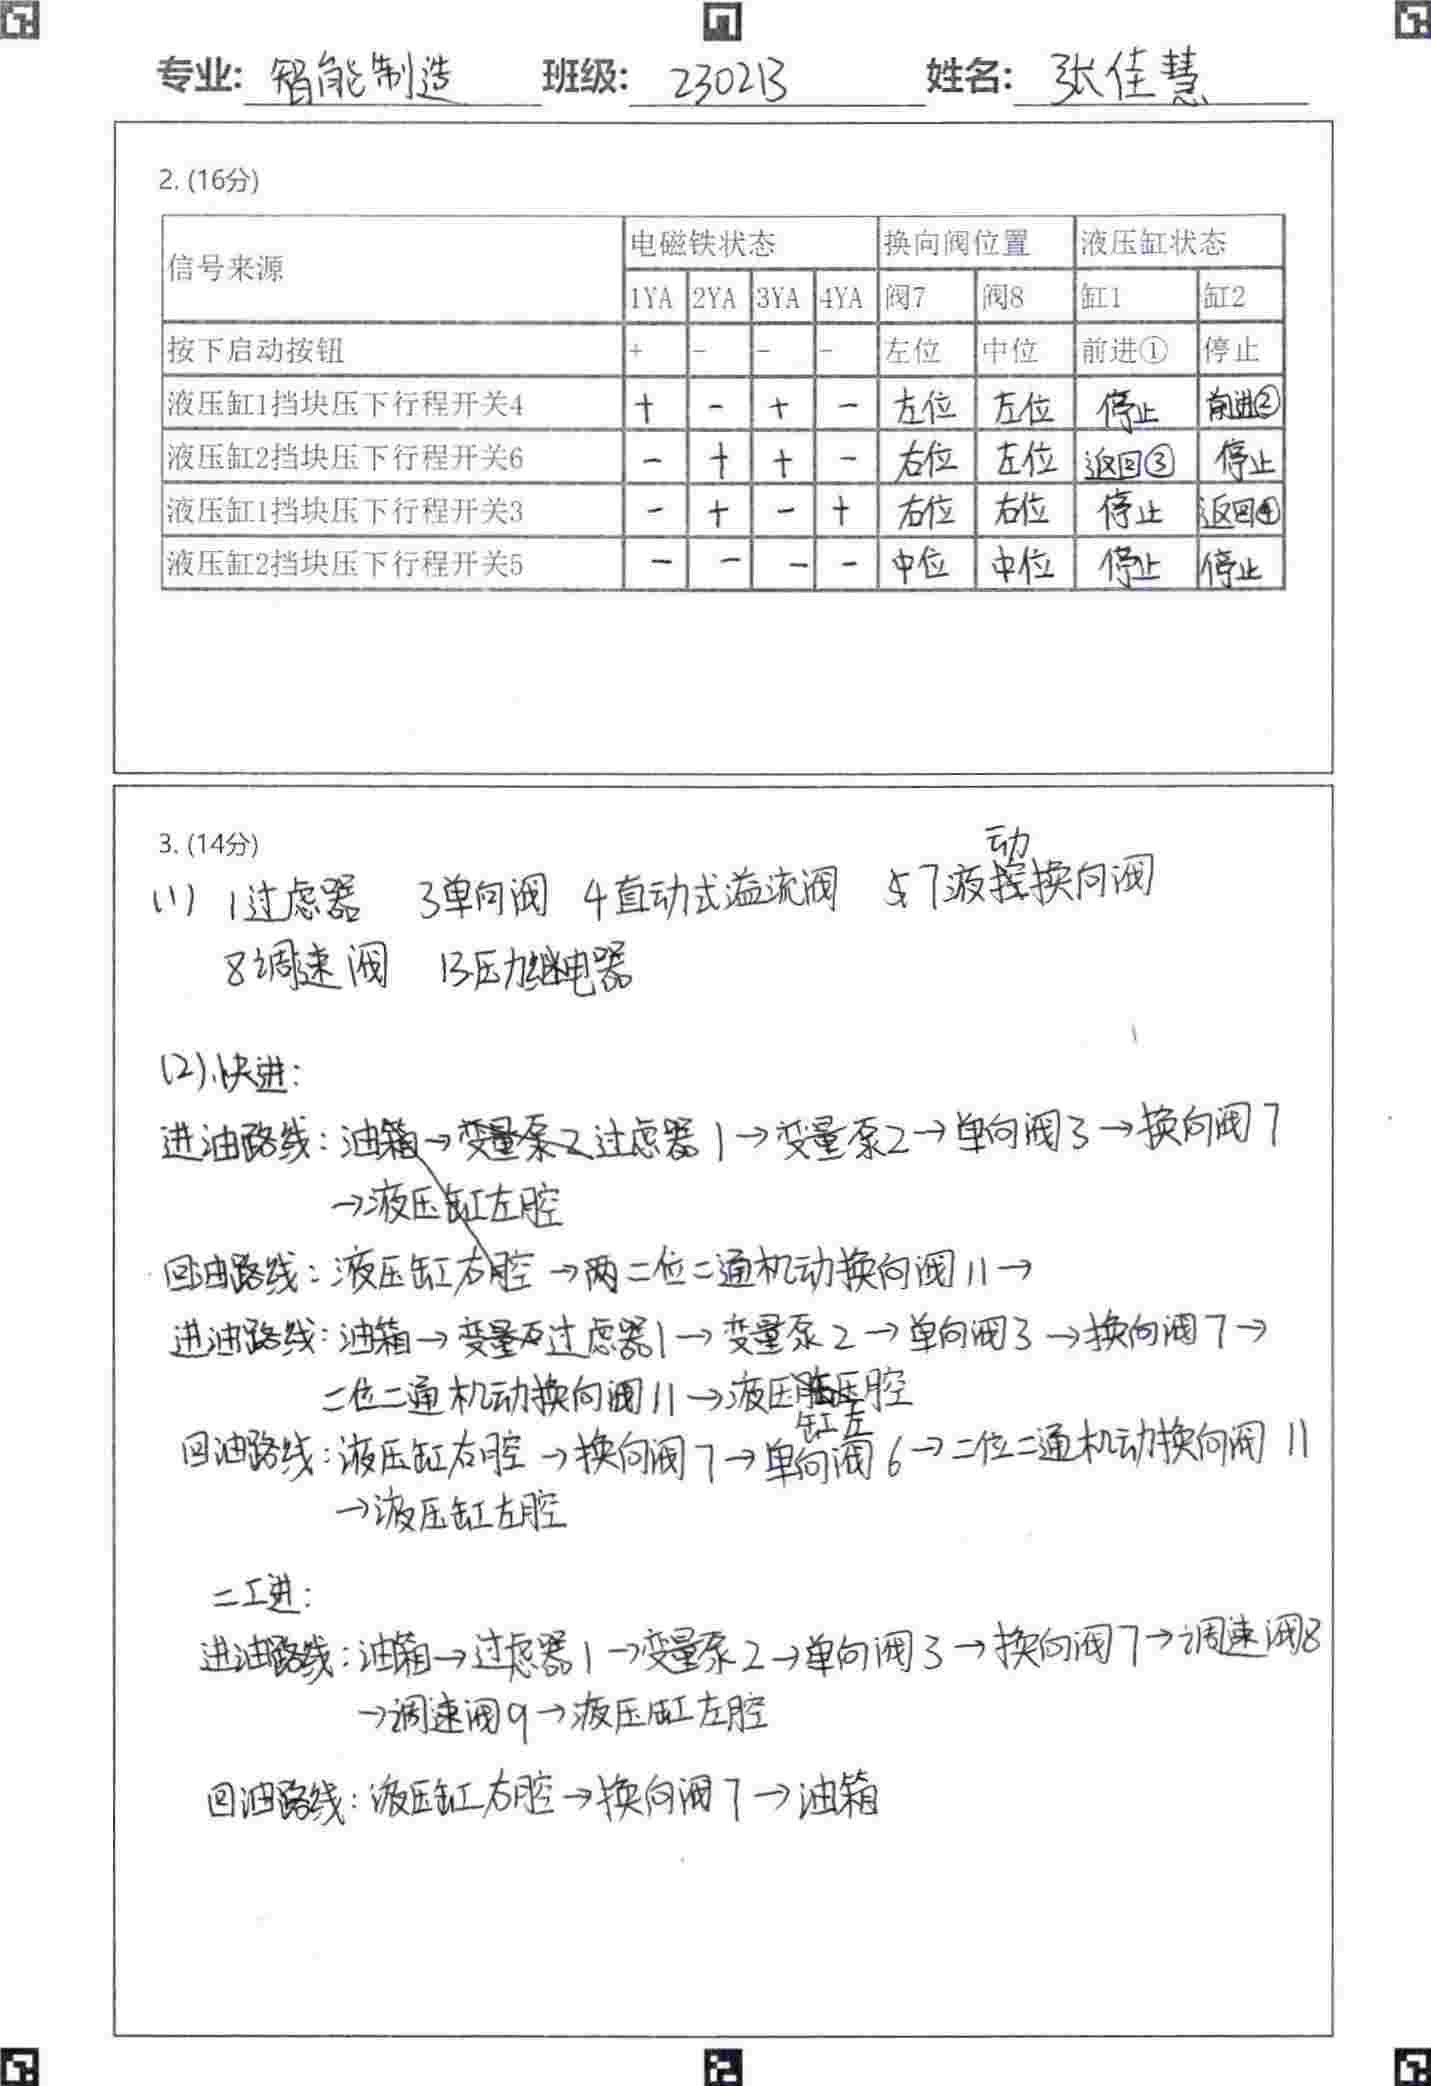 专业: 智能制造 班级: 230213 姓名: 张佳慧
2. (16分)
信号来源 电磁铁状态 换向阀位置 液压缸状态
1YA 2YA 3YA 4YA 阀7 阀8 缸1 缸2
按下启动按钮 + - - - 左位 中位 前进① 停止
液压缸1挡块压下行程开关4 + - + - 左位 左位 停止 前进②
液压缸2挡块压下行程开关6 - + + - 右位 左位 返回③ 停止
液压缸1挡块压下行程开关3 - + - + 右位 右位 停止 返回④
液压缸2挡块压下行程开关5 - - - - 中位 中位 停止 停止
3. (14分)
(1) 1过虑器 3单向阀 4直动式溢流阀 7液动换向阀
8调速阀 13压力继电器
(2).快进:
进油路线: 油箱→变量泵2过虑器1→变量泵2→单向阀3→换向阀7
→液压缸左腔
回油路线: 液压缸右腔→两二位二通机动换向阀11→
进油路线: 油箱→变量过虑器1→变量泵2→单向阀3→换向阀7→
二位二通机动换向阀11→液压缸左腔
回油路线: 液压缸右腔→换向阀7→单向阀6→二位二通机动换向阀11
→液压缸左腔
二工进:
进油路线: 油箱→过虑器1→变量泵2→单向阀3→换向阀7→调速阀8
→调速阀9→液压缸左腔
回油路线: 液压缸右腔→换向阀7→油箱